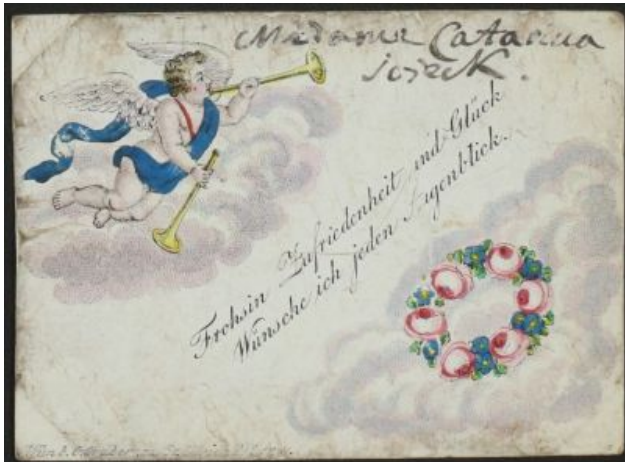 Madame Catarina
Frohsin Zufriedenheit und Glück
Wünsche ich jeden Augenblick.